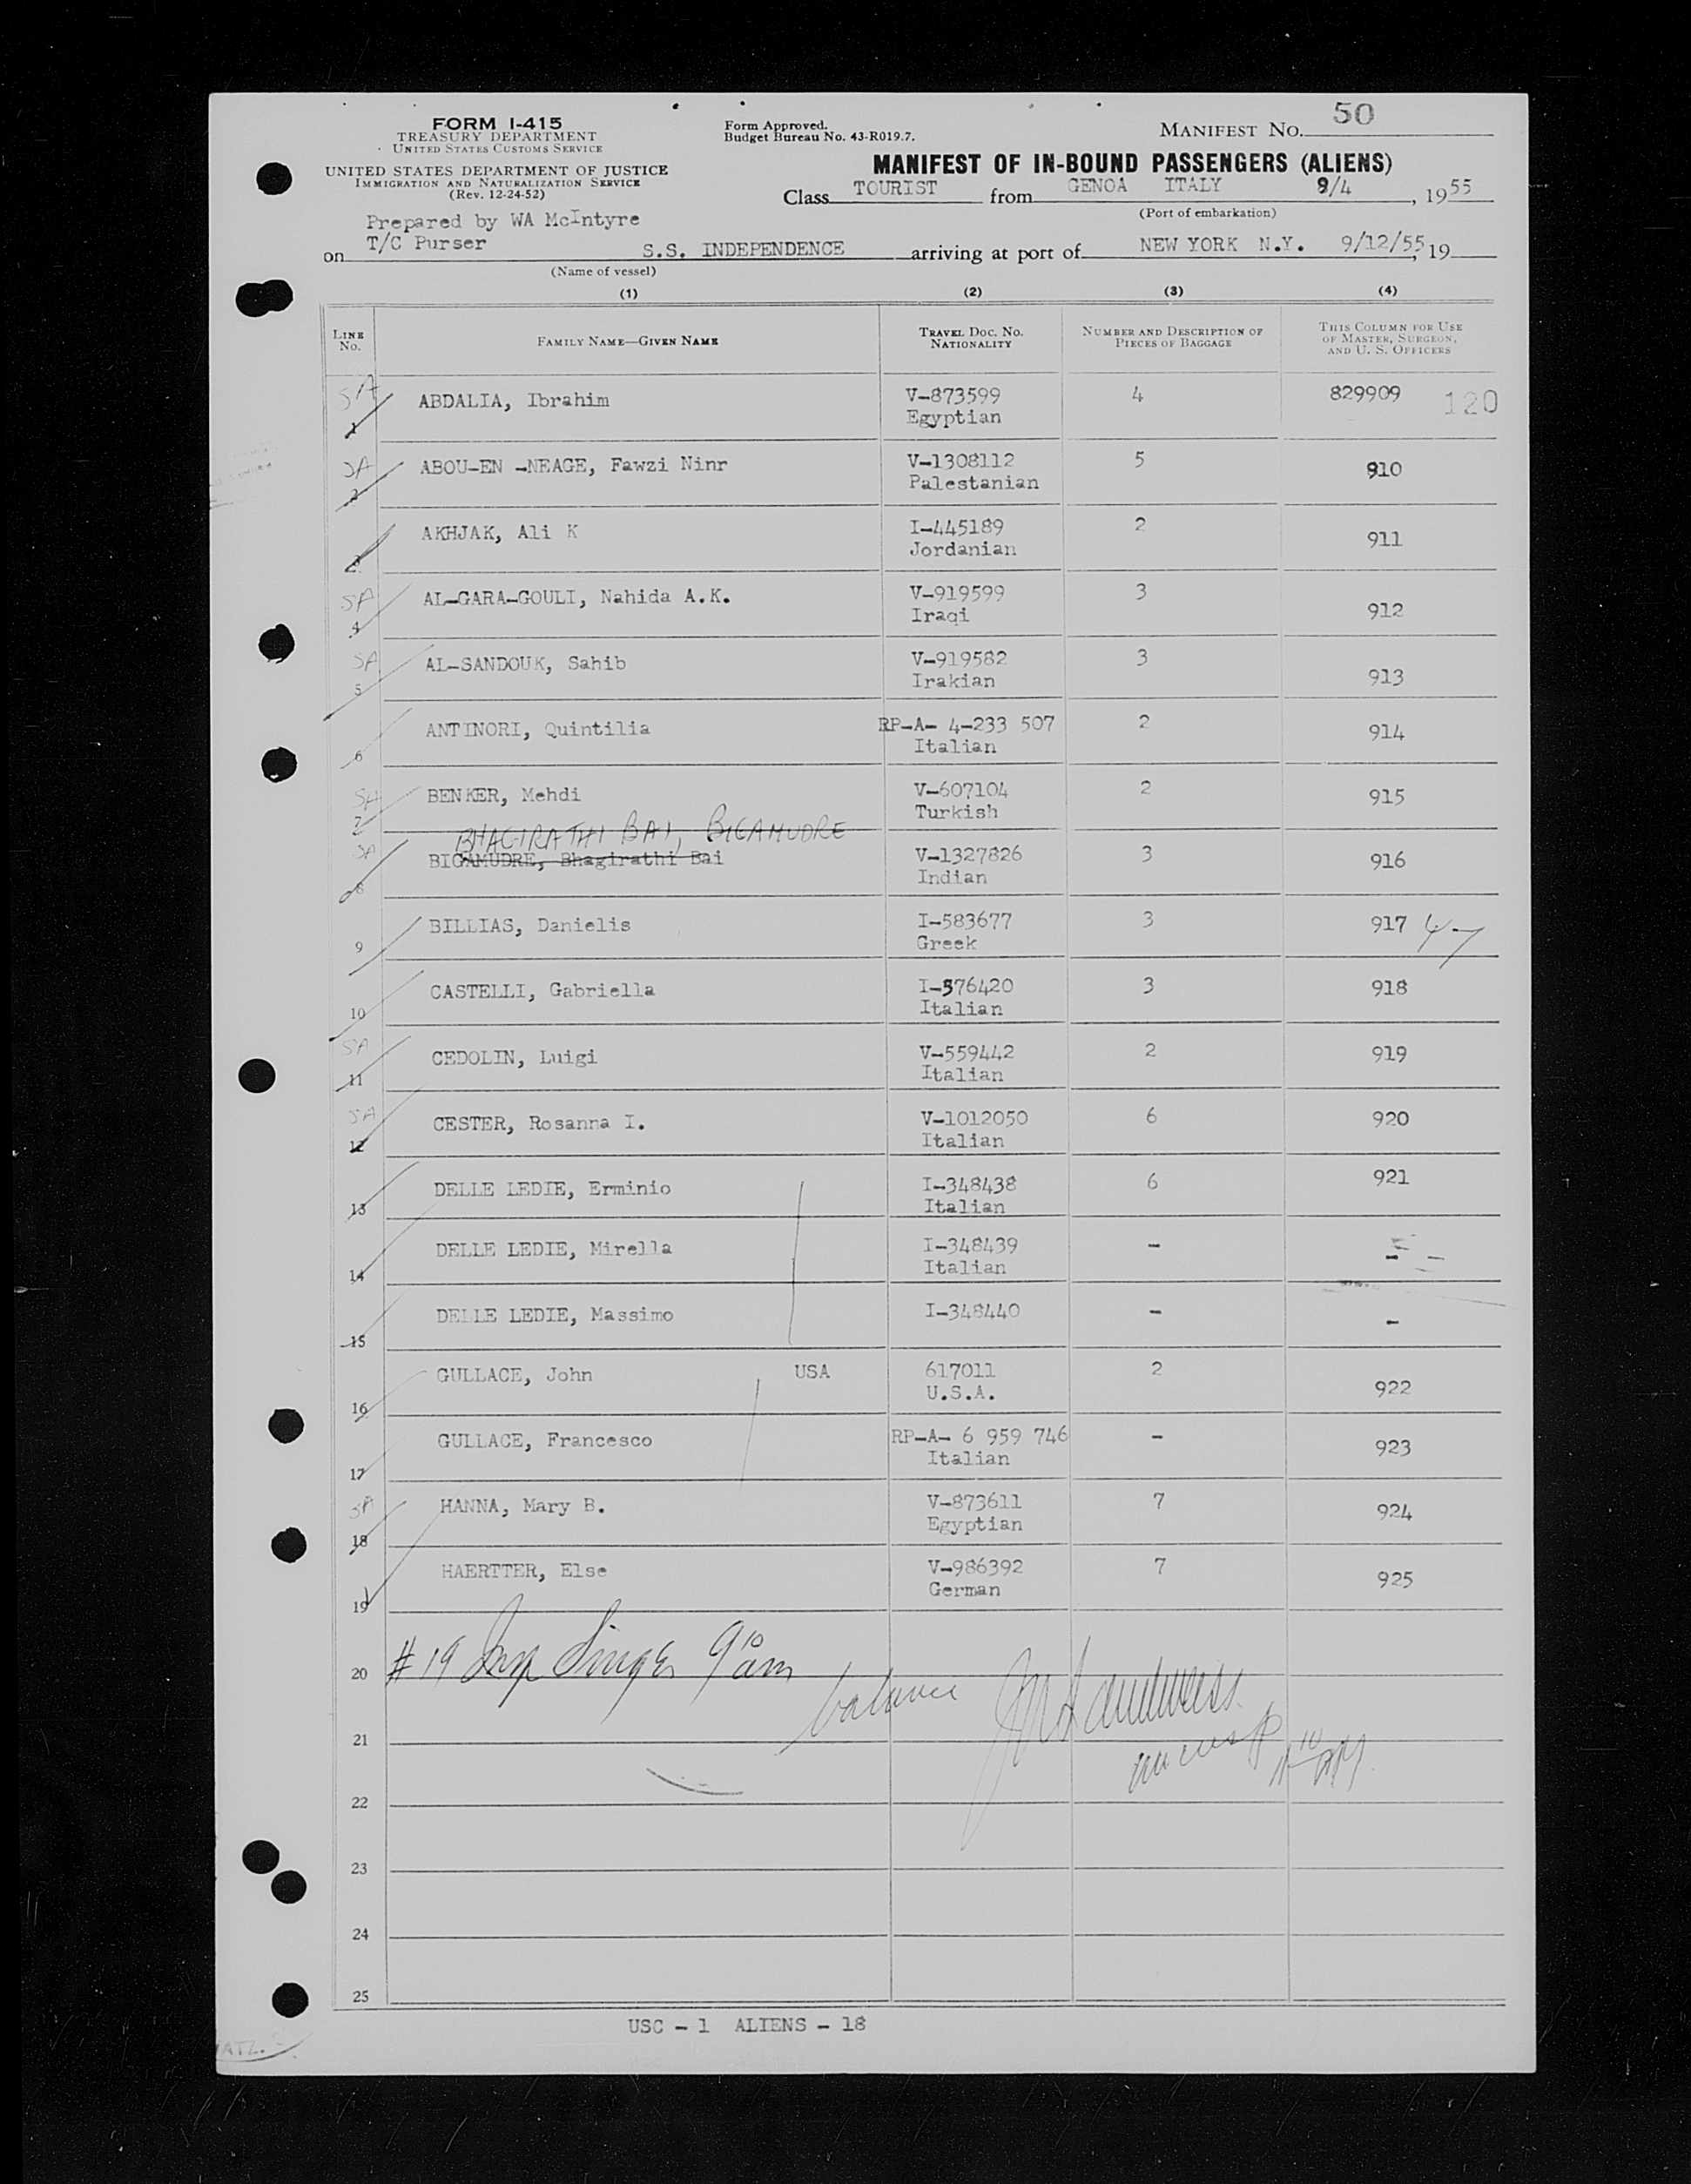 FORM I-415
TREASURY DEPARTMENT
UNITED STATES CUSTOMS SERVICE
UNITED STATES DEPARTMENT OF JUSTICE
IMMIGRATION AND NATURALIZATION SERVICE
(Rev. 12-24-52)
Form Approved.
Budget Bureau No. 43-R019.7.
MANIFEST NO. 50
MANIFEST OF IN-BOUND PASSENGERS (ALIENS)
Class TOURIST from GENOA ITALY 9/4, 1955
(Port of embarkation)
Prepared by WA McIntyre
T/C Purser
on S.S. INDEPENDENCE arriving at port of NEW YORK N.Y. 9/12/55, 19
(Name of vessel)
(1) (2) (3) (4)
LINE NO. FAMILY NAME—GIVEN NAME TRAVEL DOC. NO. NATIONALITY NUMBER AND DESCRIPTION OF PIECES OF BAGGAGE THIS COLUMN FOR USE OF MASTER, SURGEON, AND U. S. OFFICERS
SA 1 ABDALIA, Ibrahim V-873599 4 829909 120
Egyptian
SA 2 ABOU-EN -NEAGE, Fawzi Ninr V-1308112 5 910
Palestanian
3 AKHJAK, Ali K I-445189 2 911
Jordanian
SA 4 AL-GARA-GOULI, Nahida A.K. V-919599 3 912
Iraqi
SA 5 AL-SANDOUK, Sahib V-919582 3 913
Irakian
6 ANTINORI, Quintilia RP-A- 4-233 507 2 914
Italian
SA 7 BENKER, Mehdi V-607104 2 915
Turkish
BHAGIRATHI BAI, BIGAMUDRE
SA 8 BIGAMUDRE, Bhagirathi Bai V-1327826 3 916
Indian
9 BILLIAS, Danielis I-583677 3 917
Greek
10 CASTELLI, Gabriella I-576420 3 918
Italian
SA 11 CEDOLIN, Luigi V-559442 2 919
Italian
SA 12 CESTER, Rosanna I. V-1012050 6 920
Italian
13 DELLE LEDIE, Erminio I-348438 6 921
Italian
14 DELLE LEDIE, Mirella I-348439 - -
Italian
15 DELLE LEDIE, Massimo I-348440 - -
16 GULLACE, John USA 617011 2 922
U.S.A.
17 GULLACE, Francesco RP-A- 6 959 746 - 923
Italian
SA 18 HANNA, Mary B. V-873611 7 924
Egyptian
19 HAERTTER, Else V-986392 7 925
German
20 #19 Insp Singer 9 10 am
balance
21
22
23
24
25
USC - 1 ALIENS - 18